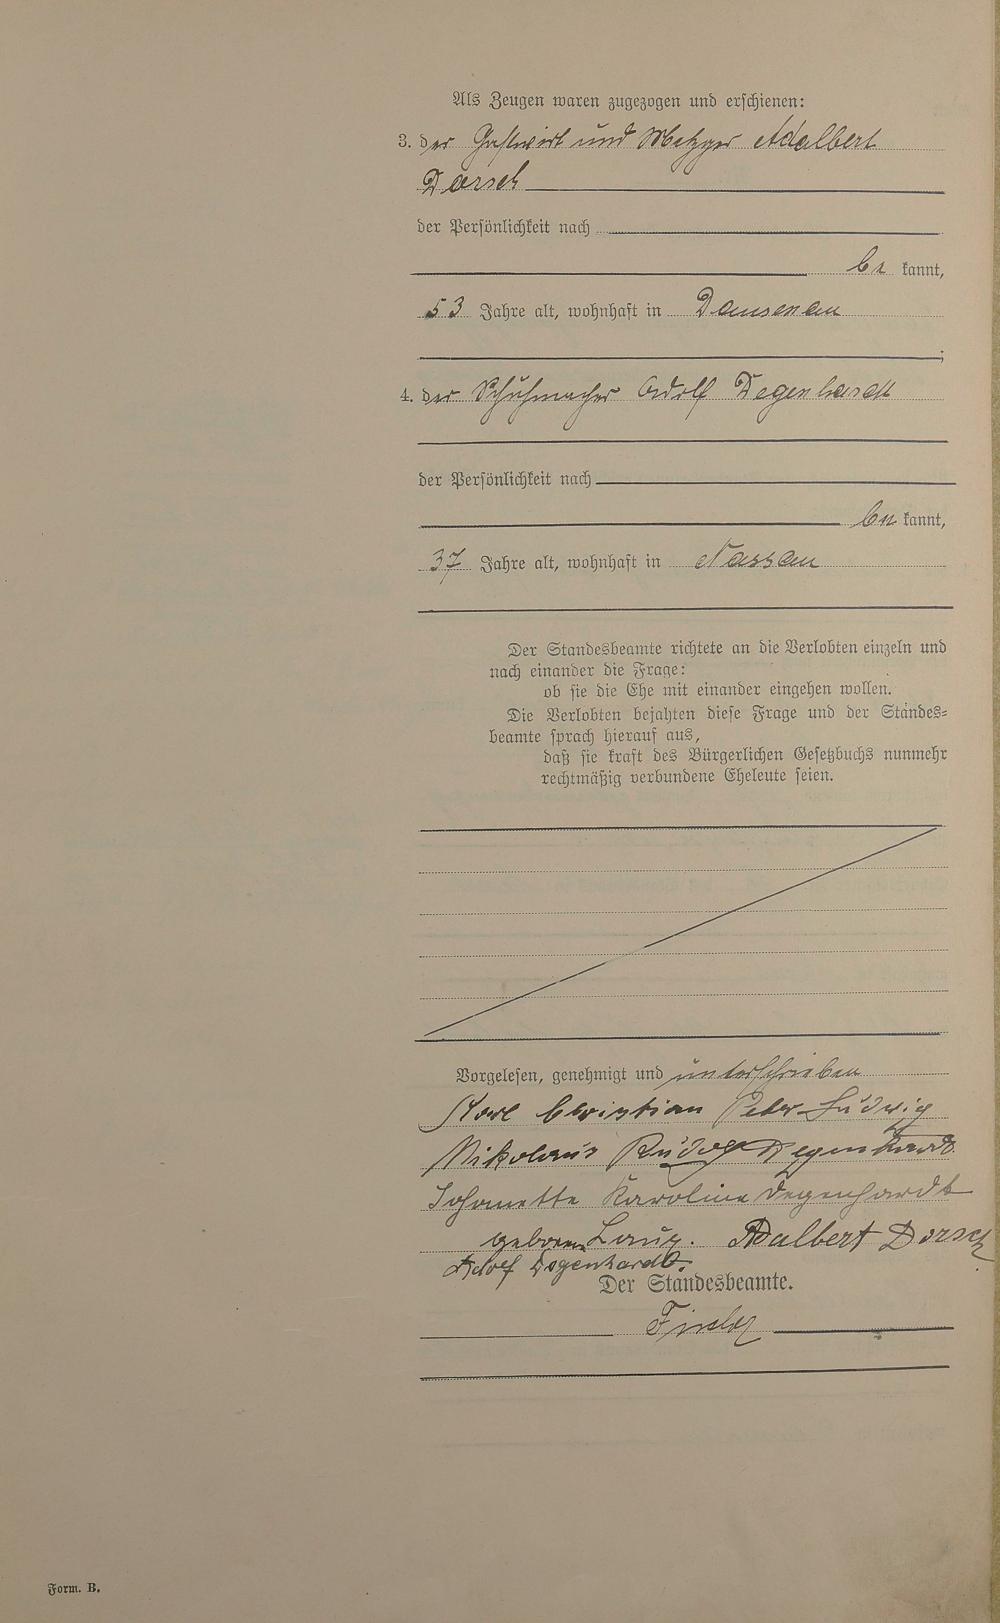 Als Zeugen waren zugezogen und erschienen:
3. der Gastwirt und Metzger Adalbert
Dorsch
der Persönlichkeit nach
be kannt,
53 Jahre alt, wohnhaft in Dausenau
;
4. der Schuhmacher Adolf Degenhardt
der Persönlichkeit nach
be kannt,
37 Jahre alt, wohnhaft in Nassau
Der Standesbeamte richtete an die Verlobten einzeln und
nach einander die Frage:
ob sie die Ehe mit einander eingehen wollen.
Die Verlobten bejahten diese Frage und der Standes-
beamte sprach hierauf aus,
daß sie kraft des Bürgerlichen Gesetzbuchs nunmehr
rechtmäßig verbundene Eheleute seien.
Vorgelesen, genehmigt und unterschrieben
Karl Christian Peter Ludwig
Nikolaus Rudolf Degenhardt
Johanette Karoline Degenhardt
geboren Adalbert Dorsch
Adolf Degenhardt.
Der Standesbeamte.
Form. B.